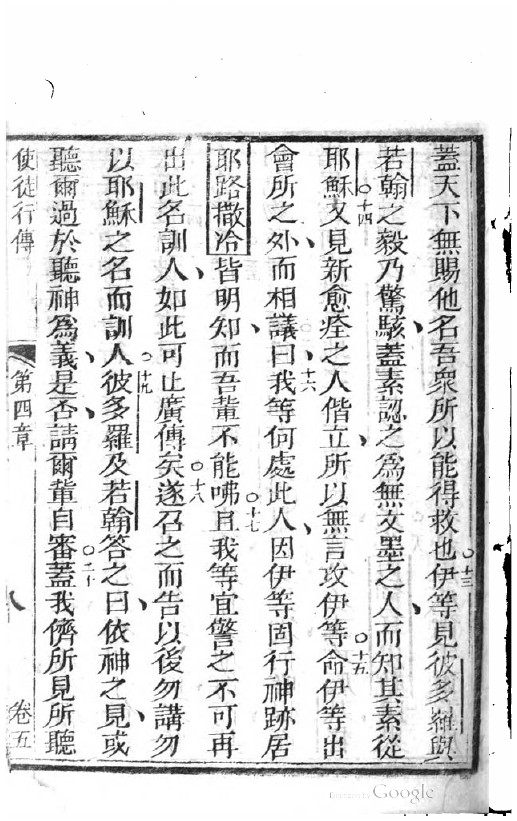 蓋天下無賜他名吾衆所以能得救也○十三伊等見彼多羅與
若翰之毅乃驚駭蓋素認之爲無文墨之人而知其素從
耶穌○十四又見新愈痊之人偕立所以無言攻伊等○十五命伊等出
會所之外而相議曰○十六我等何處此人因伊等固行神跡居
耶路撒冷皆明知而吾輩不能咈○十七且我等宜警之不可再
出此名訓人如此可止廣傳矣○十八遂召之而告以後勿講勿
以耶穌之名而訓人○十九彼多羅及若翰答之曰依神之見或
聽爾過於聽神爲義是否請爾輩自審○二十蓋我儕所見所聽
使徒行傳 第四章 八 卷五
Digitized by Google